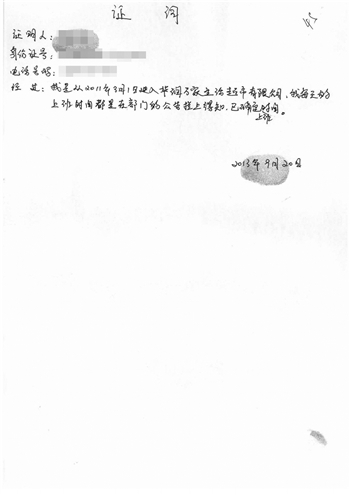 证 词
证明人：
身份证号：
电话号码：
经过：我是从2011年3月1日进入华润万家生活超市有限公司，我每天的
上班时间都是在部门的公告栏上得知，已确定时间。
上班
2013年9月20日